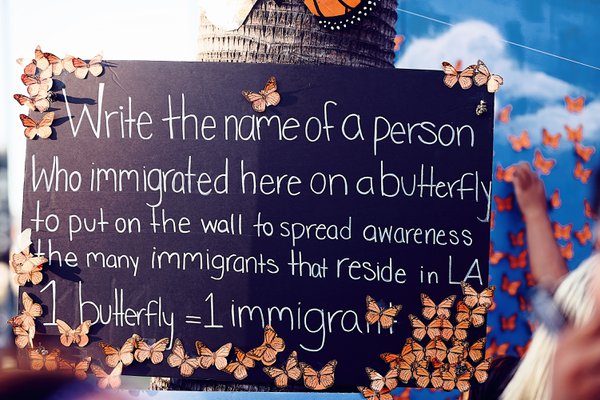 Write the name of a person
Who immigrated here on a butterfly
to put on the wall to spread awareness
the many immigrants that reside in LA
1 butterfly = 1 immigrant